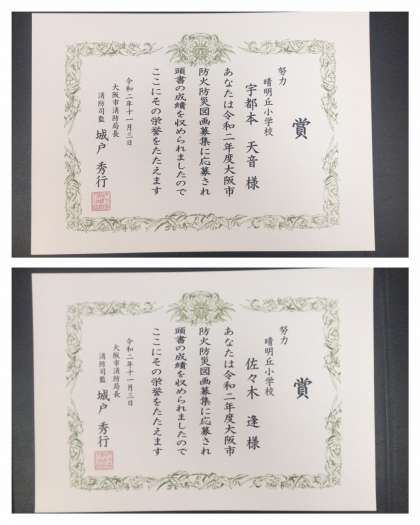 賞
努力
晴明丘小学校
宇都本 天音 様
あなたは令和二年度大阪市
防火防災図画募集に応募され
頭書の成績を収められましたので
ここにその栄誉をたたえます
令和二年十一月三日
大阪市消防局長
消防司監 城戸 秀行
賞
努力
晴明丘小学校
佐々木 逢 様
あなたは令和二年度大阪市
防火防災図画募集に応募され
頭書の成績を収められましたので
ここにその栄誉をたたえます
令和二年十一月三日
大阪市消防局長
消防司監 城戸 秀行